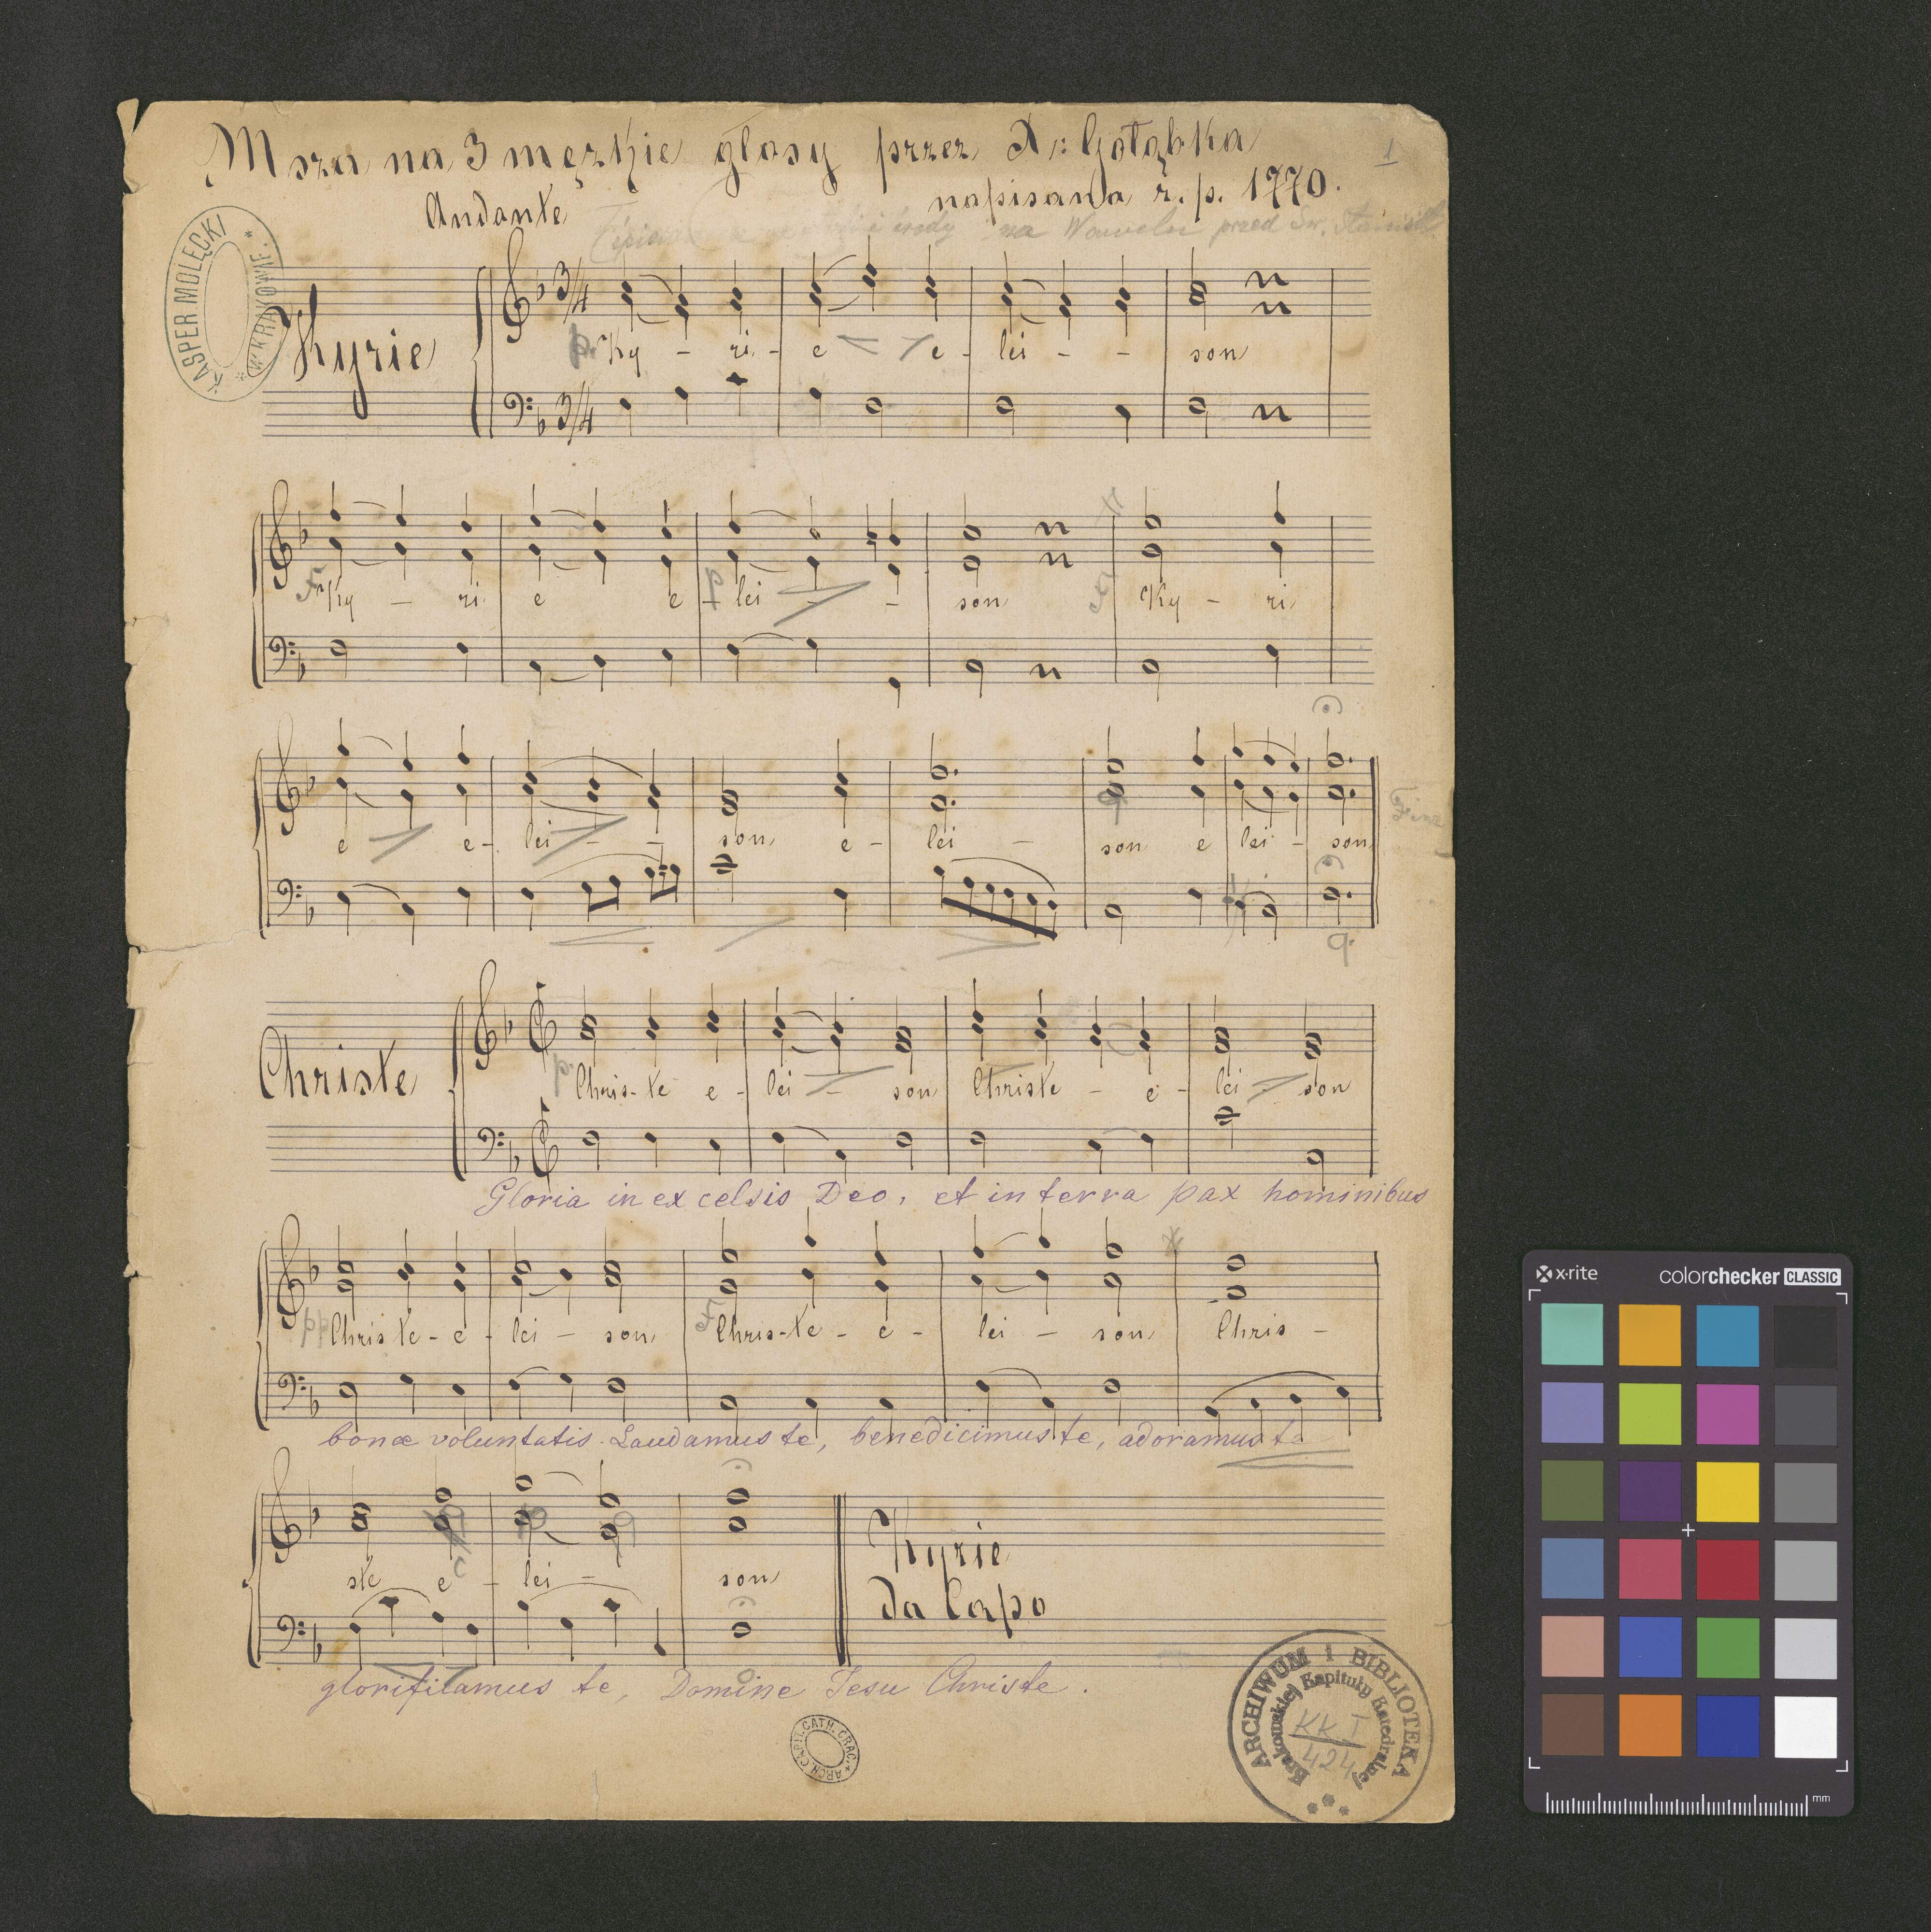 Msza na 3 męzkie głosy przez X: Gołąbka
1
Andante
napisana r. p. 1770.
na Wawelu przed Św. Stanisł.
KASPER MOLĘCKI
* W KRAKOWIE. *
Kyrie
3/4
p. Ky - ri - e e - lei - - son
3/4
f Ky - ri e e - p lei - - son Ky - ri
e e - lei - - son, e - lei - son e lei - son
Fine
Christe
p. Chris-te e - lei - son Christe - e - lei - son
Gloria in excelsis Deo, et in terra pax hominibus
pp Christe - e - lei - son, f Chris-te - e - lei - son, Chris -
bonæ voluntatis. Laudamus te, benedicimus te, adoramus te
ste e - lei - son
Kyrie
da Capo
glorificamus te, Domine Jesu Christe.
ARCH. CAPIT. CATH. CRAC.
ARCHIWUM I BIBLIOTEKA
Krakowskiej Kapituły Katedralnej
KK I
424
x·rite
colorchecker CLASSIC
mm